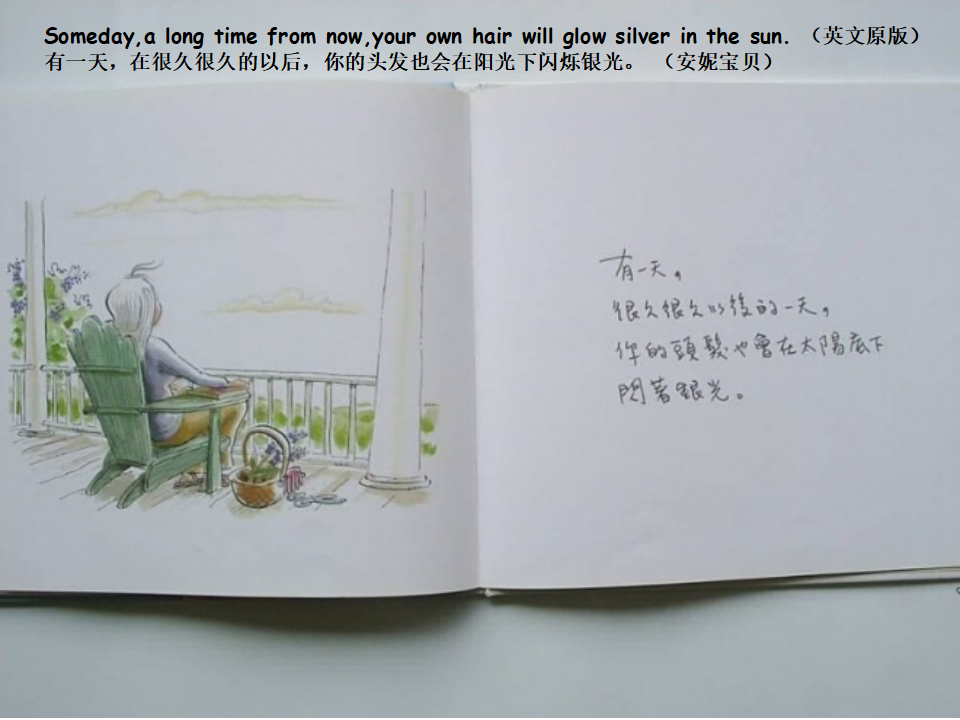 Someday,a long time from now,your own hair will glow silver in the sun. （英文原版）
有一天，在很久很久的以后，你的头发也会在阳光下闪烁银光。 （安妮宝贝）
有一天，
很久很久以後的一天，
你的頭髮也會在太陽底下
閃著銀光。